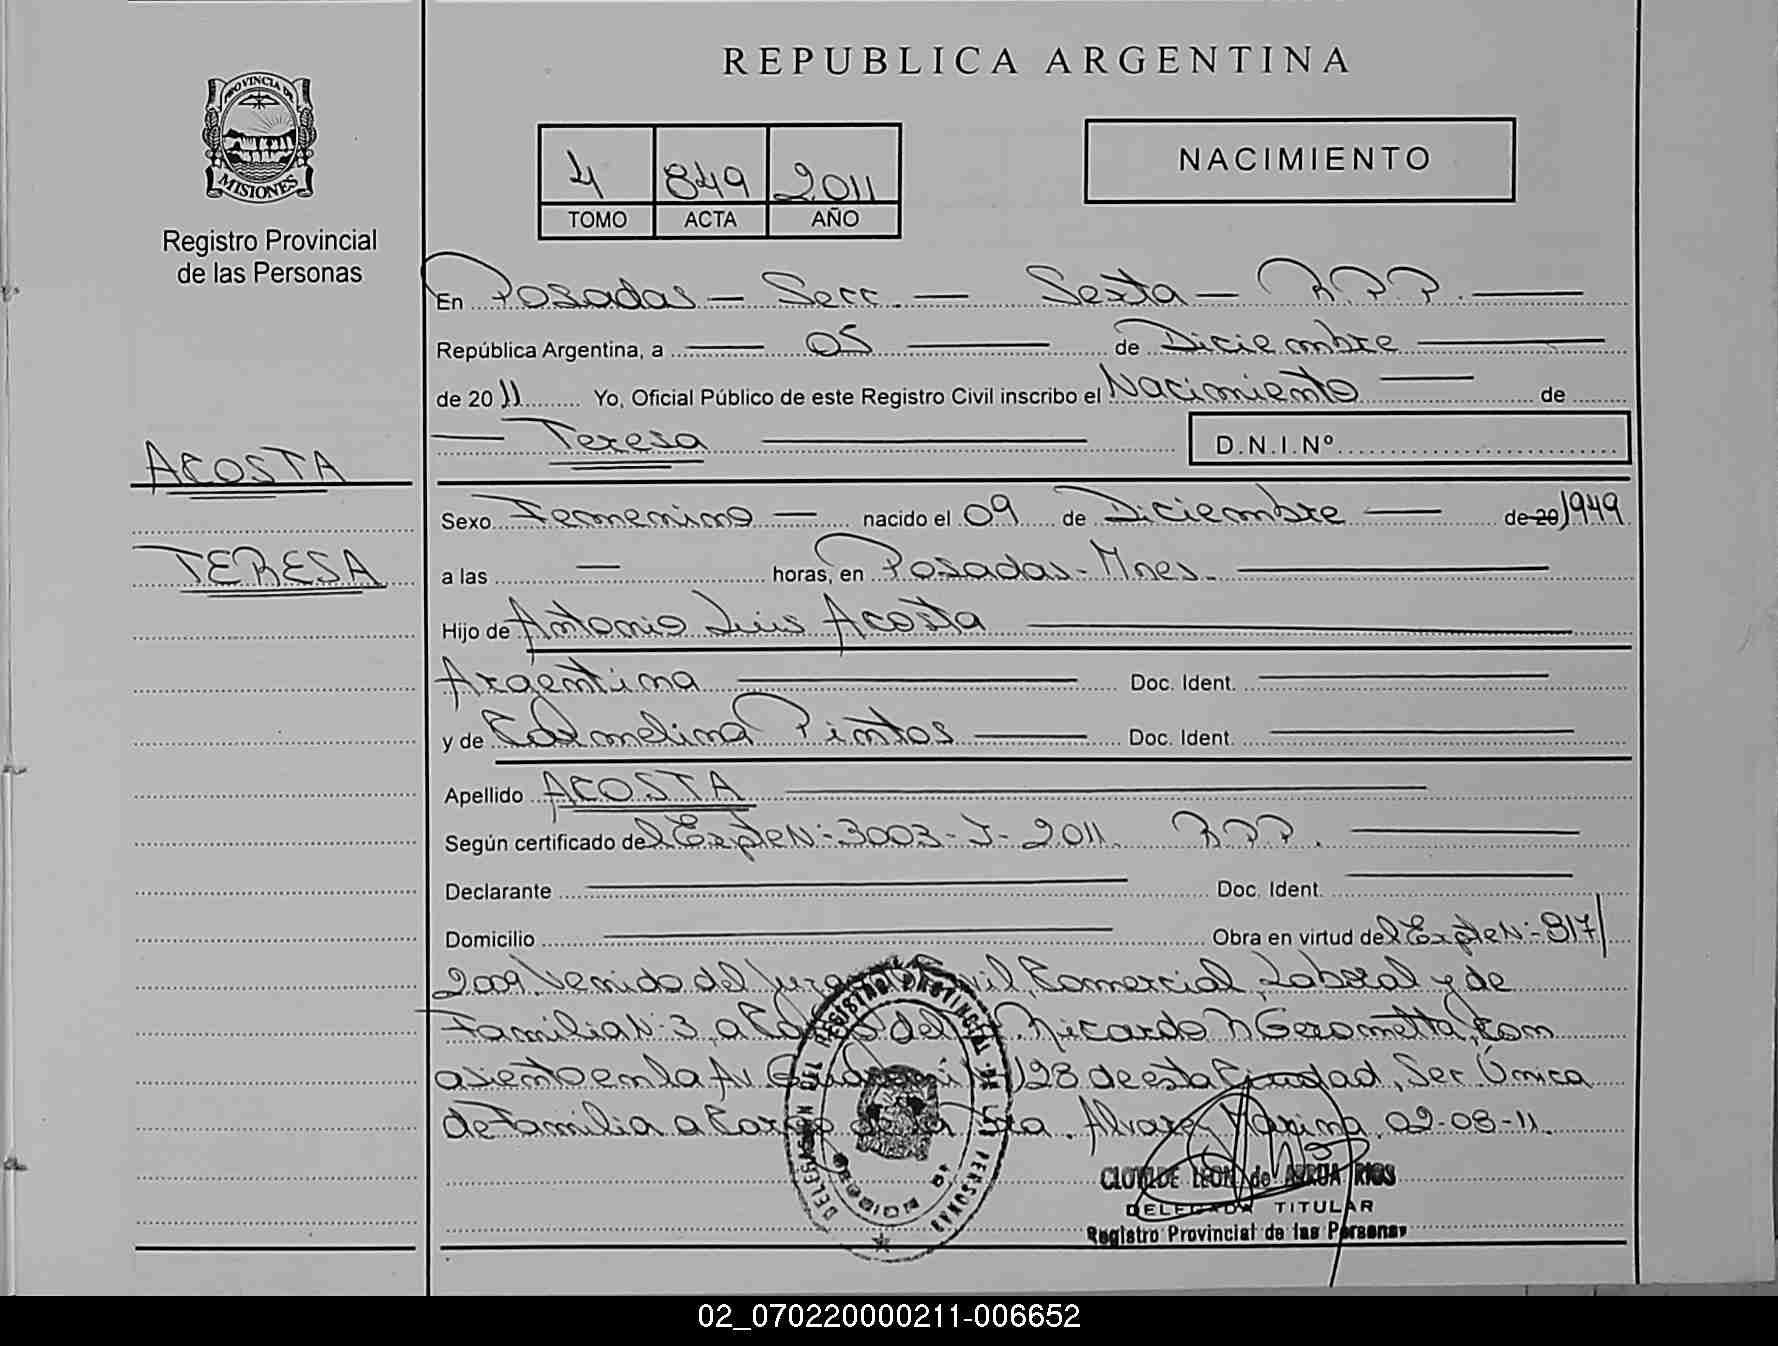 REPUBLICA ARGENTINA
PROVINCIA DE
MISIONES
Registro Provincial
de las Personas
4 849 2011
TOMO ACTA AÑO
NACIMIENTO
En Posadas - Secc. - Sexta - R.P.P.
República Argentina, a 05 de Diciembre
de 2011 Yo, Oficial Público de este Registro Civil inscribo el Nacimiento de
Teresa D.N.I.Nº
ACOSTA
Sexo Femenino nacido el 09 de Diciembre de 20 1949
TERESA
a las - horas, en Posadas - Mnes.
Hijo de Antonio Luis Acosta
Argentina Doc. Ident.
y de Carmelina Pintos Doc. Ident.
Apellido ACOSTA
Según certificado del Expte N:- 3003-J-2011. R.P.P.
Declarante Doc. Ident.
Domicilio Obra en virtud del Expte N:- 817/
2009 Venido del Juzg Civil, Comercial, Laboral y de
Familia N: 3, a Cargo del Ricardo N Gerometta, con
asiento en la Av. 128 de esta Ciudad, Sec. Única
de Familia a Cargo de la Dra. Alvarez Marina, 02-08-11.
DELEGA DEL REGISTRO PROVINCIAL DE LAS PERSONAS
CLOTILDE LEON de ARRUA RIOS
DELEGADA TITULAR
Registro Provincial de las Personas
02_070220000211-006652